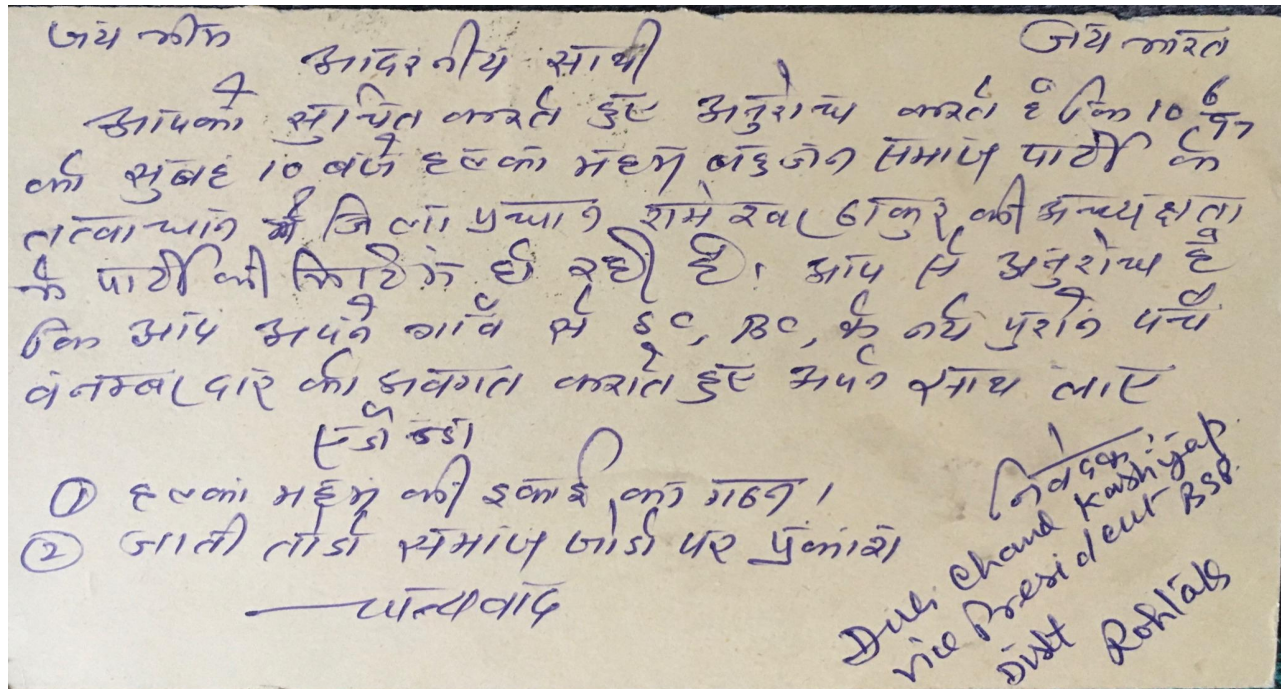 जय भीम जय भारत
आदरणीय साथी
आपको सुचित करते हुए अनुरोध करते है कि 10 6/97
को सुबह 10 बजे हल्का महम बहुजन समाज पार्टी के
तत्वाधान में जिला प्रधान रामेश्वर ठाकुर की अध्यक्षता
में पार्टी की मिटिंग हो रही है। आप से अनुरोध है
कि आप अपने गाँव से SC, BC, के नये पुराने पंचों
व नम्बरदार को अवगत कराते हुए अपने साथ लाए
एजेंडा
① हल्का महम की इकाई का गठन।
② जाती तोड़ो समाज जोड़ो पर प्रकाश
धन्यवाद
निवेदक:
Chand Kashyap
vice President BSP
Distt Rohtak